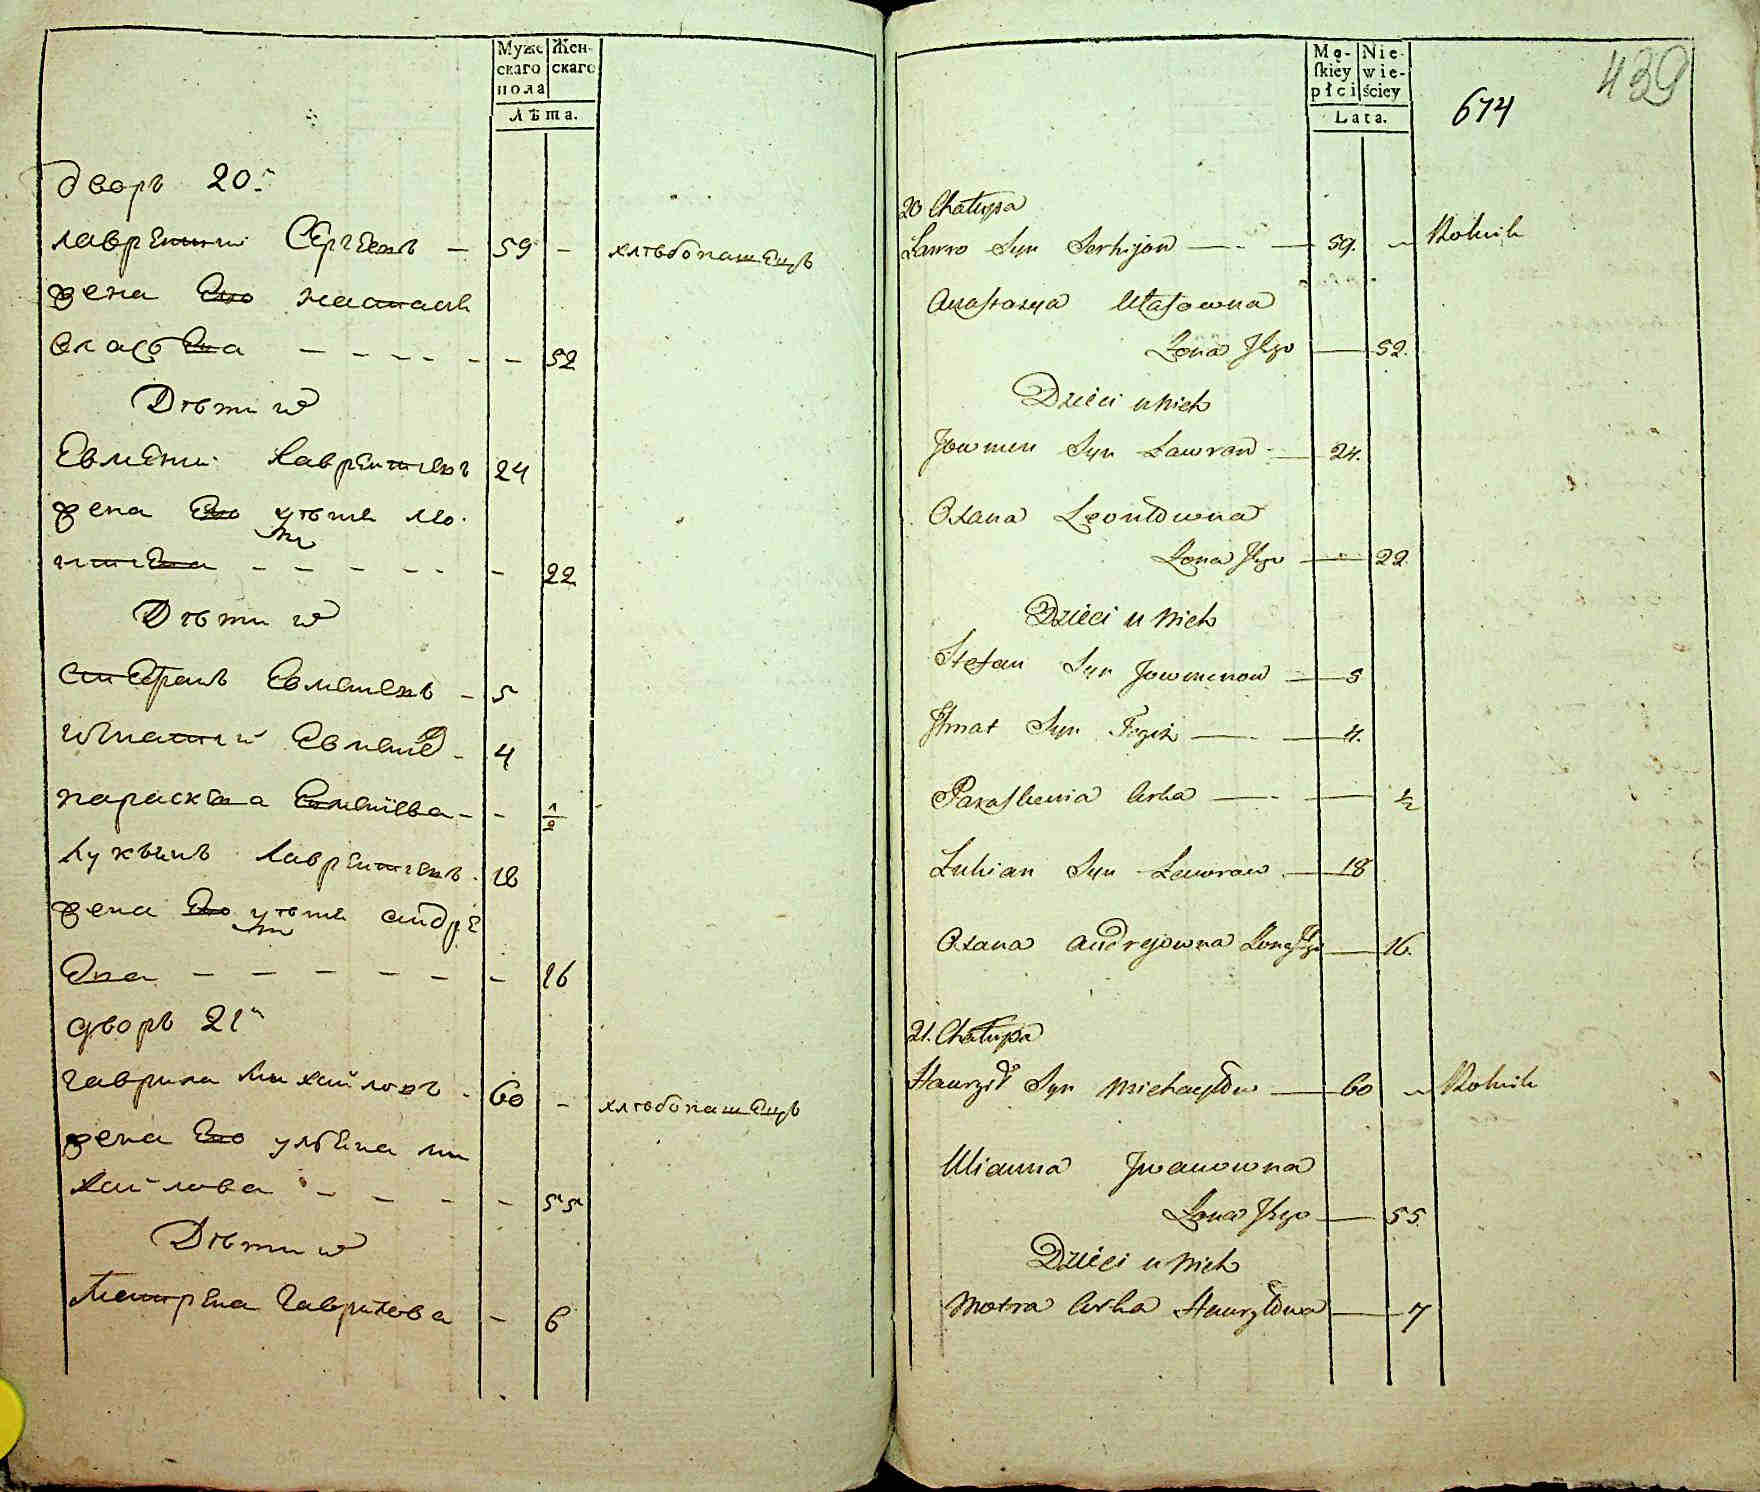 Муже
скаго
пола
Жен-
скаго
Лѣта.
дворъ 20й
лаврентий Сергѣевъ — 59 — хлѣбопашецъ
жена Ево настасия
власова — 52
Дѣти их
Евмений Лаврентиевъ 24
жена Ево
— 22
Дѣти их
стефанъ Евмениевъ — 5
игнатий Евмение — 4
параскева Евмениева — 1/2
лукьянъ лаврентиевъ 18
жена Ево андре
Ева — 16
дворъ 21й
гаврила михайловъ — 60 — хлѣбопашецъ
жена Ево улияна ми
хайлова — 55
Дѣти их
Матрена гаврилова — 6
Mę-
ſkiéy
płci
Nie-
wie-
ściey
Lata.
674
439
20 Chałupa
Ławro Syn Serhijow — 59. Rolnik
Anastazya Własowna
Żona Jego — 52.
Dzieci u Nich
Jowmen Syn Ławrow — 24.
Oxana Leontowna
Żona Jego — 22
Dzieci u Nich
Stefan Syn Jowmenow — 5
Ihnat Syn Tegoż — 4.
Paraskewia Corka — 1/2
Łukian Syn Ławrow — 18
Oxana Andrejowna Żona Jego — 16.
21. Chałupa
Hawrył Syn Michayłow — 60 Rolnik
Ulianna Jwanowna
Żona Jego — 55.
Dzieci u Nich
Motra Corka Hawryłowna — 7